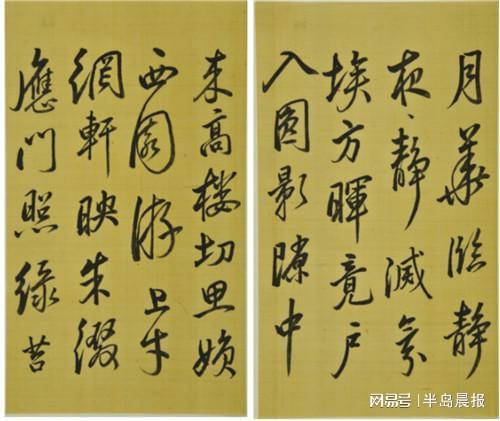 月華臨靜
夜〻靜滅氛
埃方暉竟戶
入圓影隙中
來高樓切思
西園游上才
網軒映朱綴
應門照綠苔
网易号 | 半岛晨报